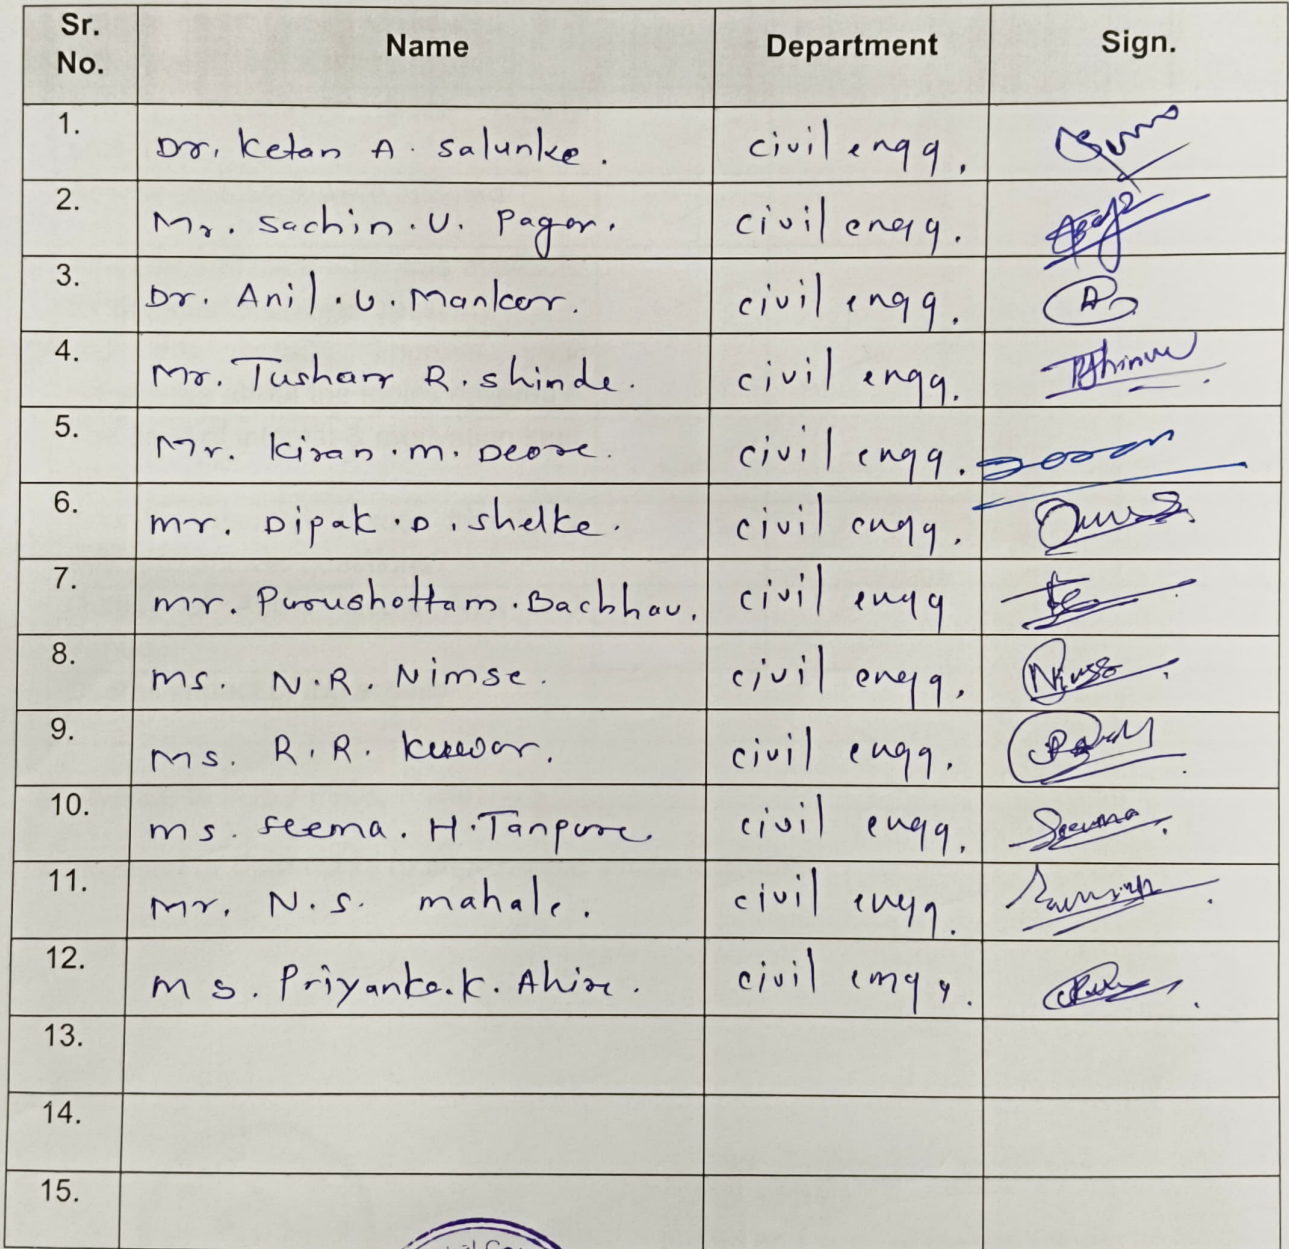 Sr. No. Name Department Sign.
1. Dr. Ketan A. Salunke. civil engg.
2. Mr. Sachin. U. Pagar. civil engg.
3. Dr. Anil. U. Mankar. civil engg. A
4. Mr. Tushar R. Shinde. civil engg.
5. Mr. Kiran. M. Deore. civil engg.
6. mr. Dipak. D. Shelke. civil engg.
7. mr. Purushottam. Bachhav. civil engg
8. ms. N. R. Nimse. civil engg.
9. ms. R. R. civil engg.
10. ms. Seema. H. Tanpure civil engg. Seema
11. mr. N. S. mahale. civil engg.
12. ms. Priyanka. K. Ahire. civil engg.
13.
14.
15.